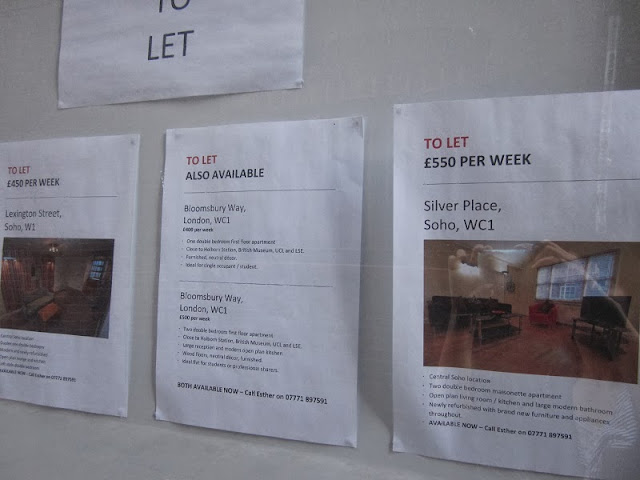 TO
LET
TO LET
£450 PER WEEK
Lexington Street,
Soho, W1
TO LET
ALSO AVAILABLE
Bloomsbury Way,
London, WC1
£400 per week
One double bedroom first floor apartment
Close to Holborn Station, British Museum, UCL and LSE.
Furnished, neutral décor.
Ideal for single occupant / student.
Bloomsbury Way,
London, WC1
per week
Two double bedroom first floor apartment
Close to Holborn Station, British Museum, UCL and LSE.
Large reception and modern open plan kitchen
Wood floors, neutral décor, furnished.
Ideal for students or professional sharers.
BOTH AVAILABLE NOW – Call Esther on 07771 897591
TO LET
£550 PER WEEK
Silver Place,
Soho, WC1
Central Soho location
Two double bedroom maisonette apartment
Open plan living room / kitchen and large modern bathroom
Newly refurbished with brand new furniture and appliances
throughout.
AVAILABLE NOW – Call Esther on 07771 897591